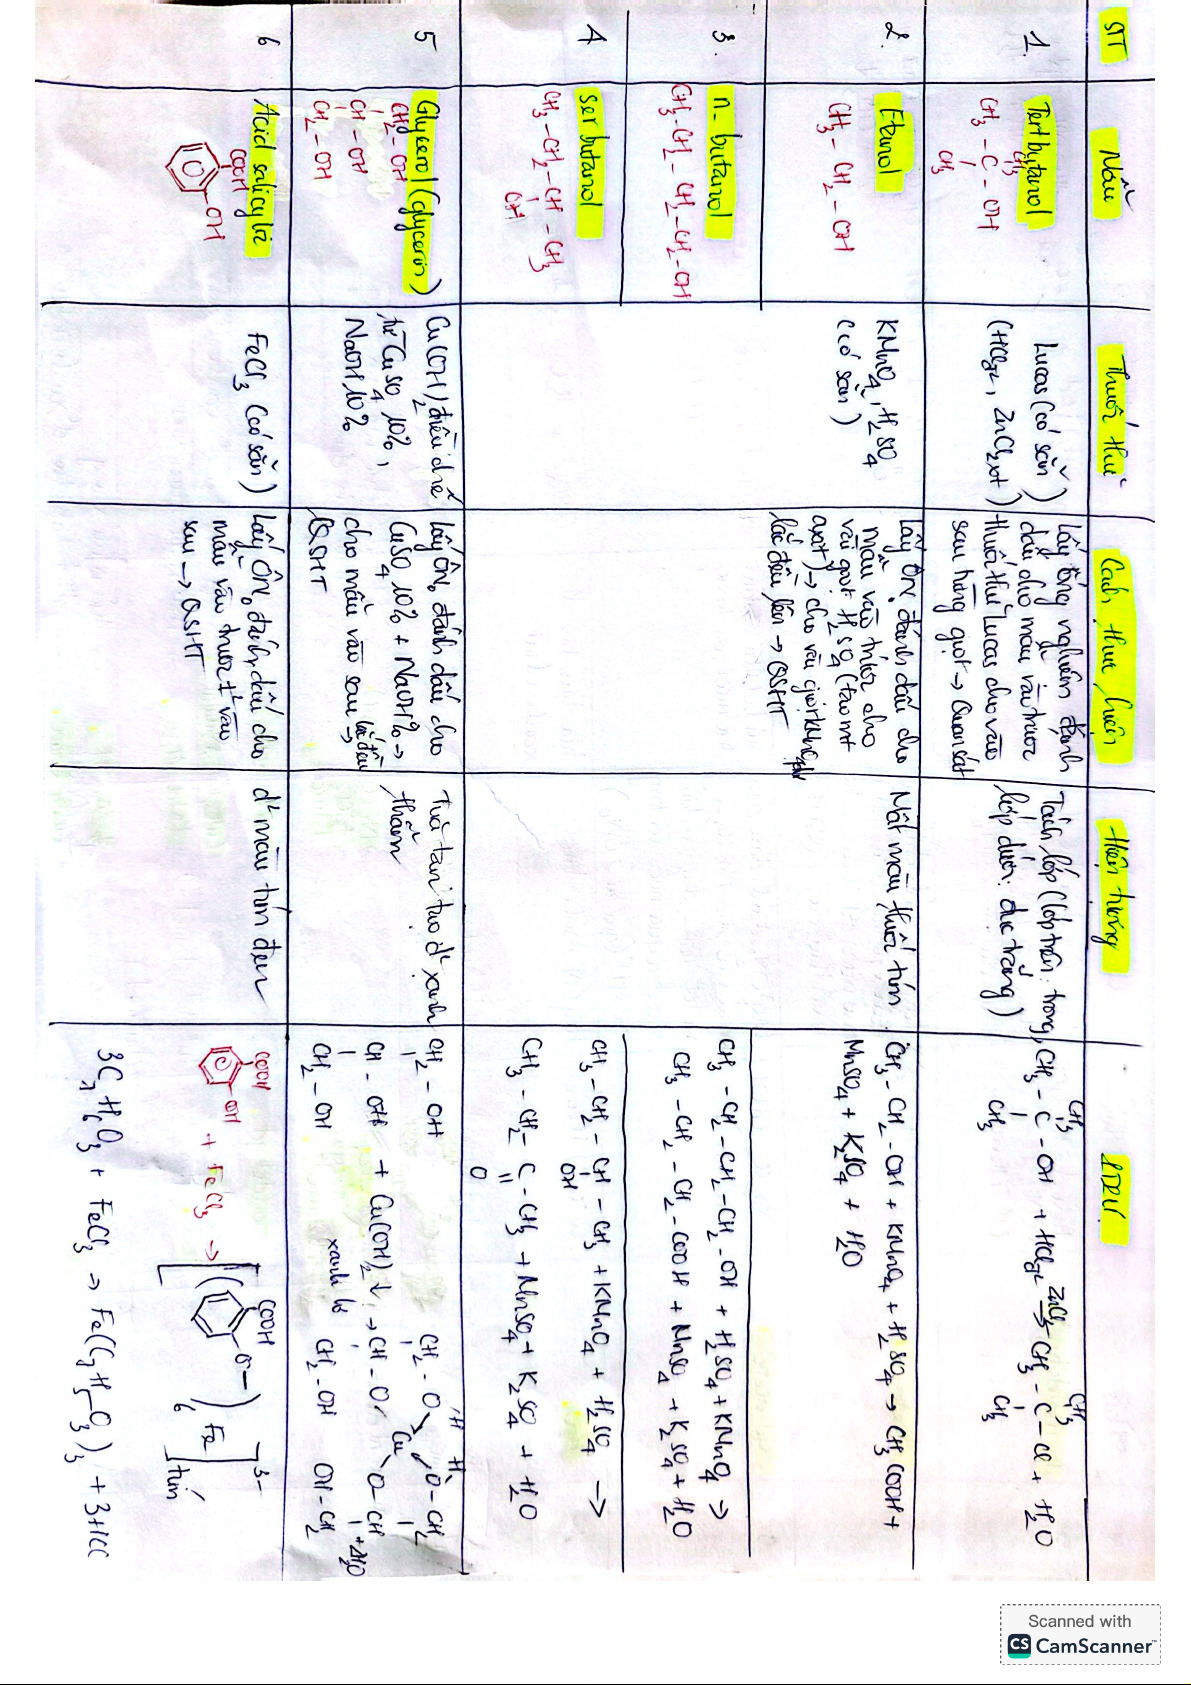 STT
Mẫu
Thuốc thử
Cách thực hiện
Hiện tượng
PTPU
1.
Tertbutanol
CH3
CH3 - C - OH
CH3
Lucas (có sẵn)
(HClđđ, ZnCl2 xt)
Lấy ống nghiệm đánh
dấu cho mẫu vào trước
thuốc thử Lucas cho vào
sau từng giọt → Quan sát
Tách lớp (lớp trên: trong,
lớp dưới: đục trắng)
CH3 CH3
CH3 - C - OH + HClđđ ZnCl2→ CH3 - C - Cl + H2O
CH3 CH3
2.
Etanol
CH3 - CH2 - OH
KMnO4, H2SO4
(có sẵn)
Lấy ÔN, đánh dấu cho
mẫu vào trước cho
vài giọt H2SO4 (tạo mt
axit) → cho vài giọt KMnO4
lắc đều lên → QSHT
Mất màu thuốc tím.
CH3 - CH2 - OH + KMnO4 + H2SO4 → CH3COOH +
MnSO4 + K2SO4 + H2O
3.
n-butanol
CH3-CH2-CH2-CH2-OH
CH3 - CH2 - CH2 - CH2 - OH + H2SO4 + KMnO4 →
CH3 - CH2 - CH2 - COOH + MnSO4 + K2SO4 + H2O
4
ser butanol
CH3-CH2-CH-CH3
OH
CH3 - CH2 - CH - CH3 + KMnO4 + H2SO4 →
OH
CH3 - CH2 - C - CH3 + MnSO4 + K2SO4 + H2O
O
5
Glycerol (glycerin)
CH2 - OH
CH - OH
CH2 - OH
Cu(OH)2 điều chế
từ CuSO4 10%,
NaOH 10%
Lấy ÔN, đánh dấu cho
CuSO4 10% + NaOH% →
cho mẫu vào sau lắc đều →
QSHT
Tủa tan tạo d² xanh
thẫm
CH2 - OH
CH - OH + Cu(OH)2 ↓ →
CH2 - OH
xanh lơ
H H
CH2 - O O - CH2
CH - O Cu O - CH + 2H2O
CH2 - OH OH - CH2
6
Acid salicylic
COOH
OH
FeCl3 (có sẵn)
Lấy ÔN, đánh dấu cho
mẫu vào trước t² vào
sau → QSHT
d² màu tím đen
COOH
OH + FeCl3 → [( COOH O - )6 Fe]3-
tím
3C7H6O3 + FeCl3 → Fe(C7H5O3)3 + 3HCl
Scanned with
CS CamScanner